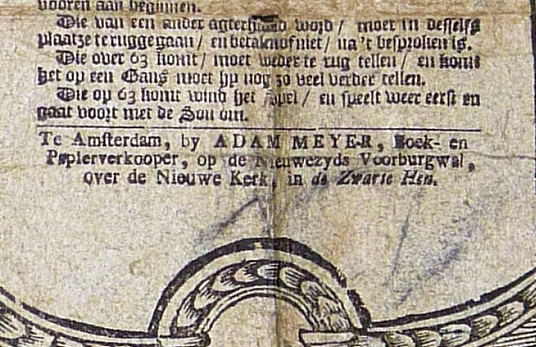 vooren aan beginnen.
Die van een ander agterhaald word / moet in desselfs
plaatze te rugge gaan / en betalen of niet / na 't besproken is.
Die over 63 komt / moet weder te rug tellen / en komt
het op een Gans moet hy nog zo veel verder tellen.
Die op 63 komt wind het Spel / en speelt weer eerst en
gaat voort met de Son om.
Te Amsterdam, by ADAM MEYER, Boek- en
Papierverkooper, op de Nieuwezyds Voorburgwal,
over de Nieuwe Kerk, in de Zwarte Hen.